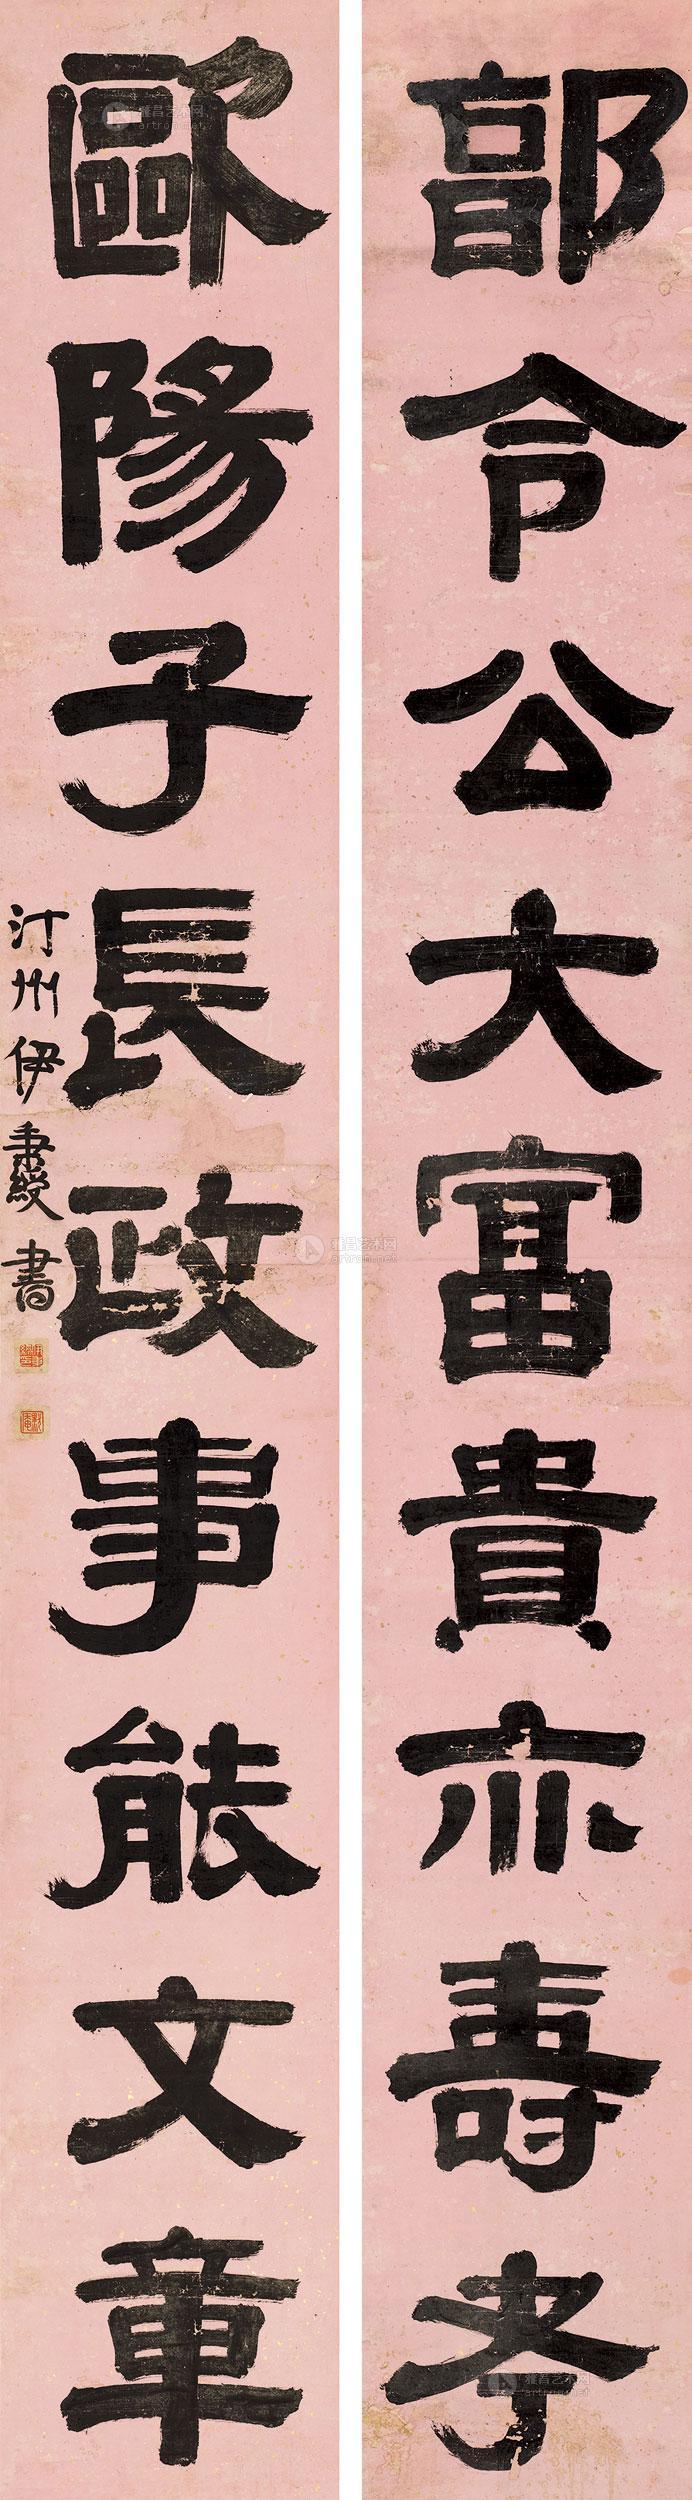 郭令公大富貴亦壽考
歐陽子長政事能文章
汀州伊秉綬書
雅昌艺术网
artron.net